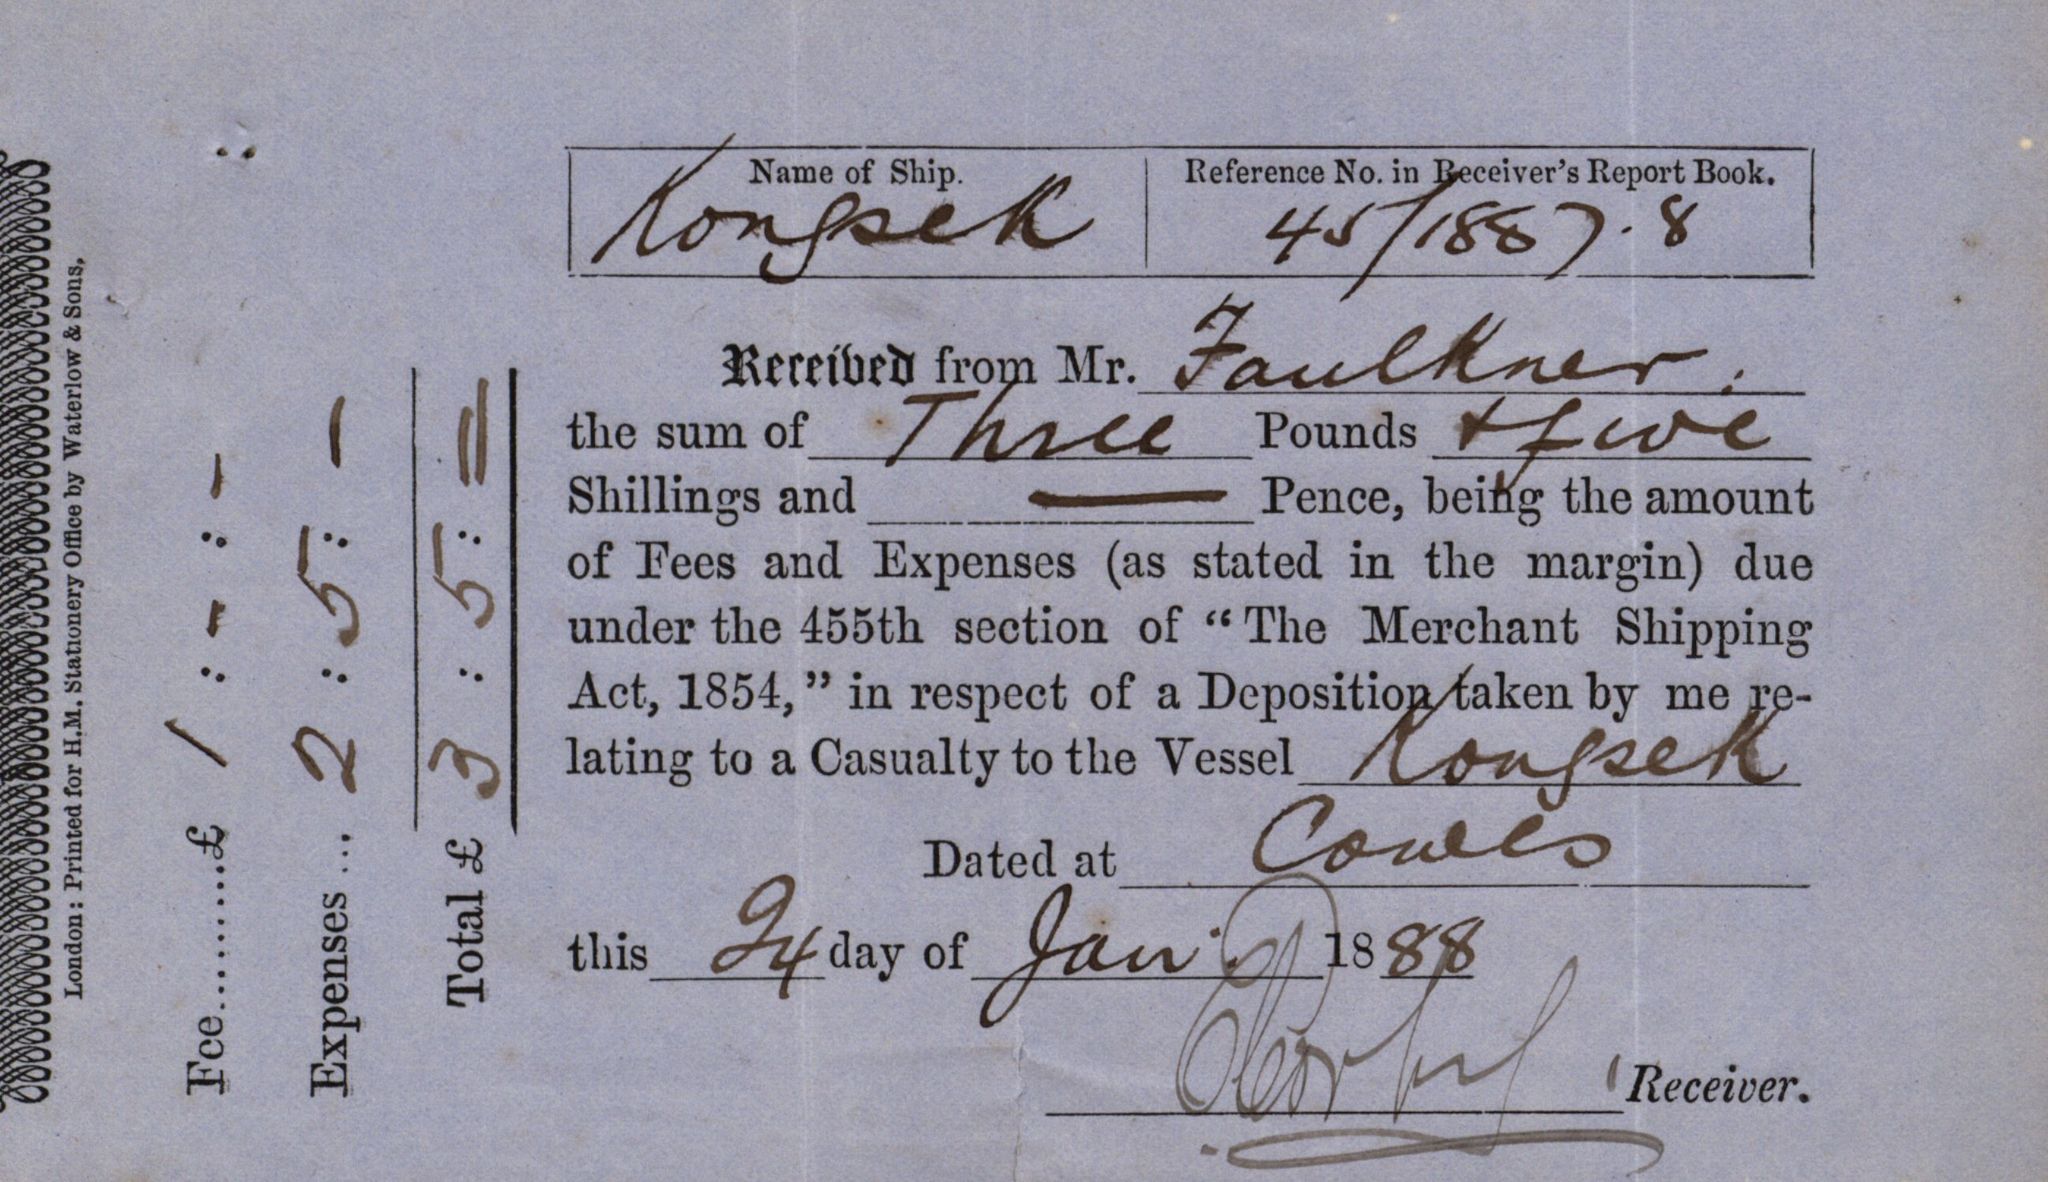 London: Printed for H.M. Stationery Office by Waterlow & Sons,
Fee.........£ 1 : - : -
Expenses ... 2 : 5 : -
Total £ 3 : 5 : =
Name of Ship.
Kongsek
Reference No. in Receiver's Report Book.
45/1887.8
Received from Mr. Faulkner.
the sum of Three Pounds + five
Shillings and — Pence, being the amount
of Fees and Expenses (as stated in the margin) due
under the 455th section of “The Merchant Shipping
Act, 1854,” in respect of a Deposition taken by me re-
lating to a Casualty to the Vessel Kongsek
Dated at Cowes
this 24 day of Jan. 1888
Receiver.